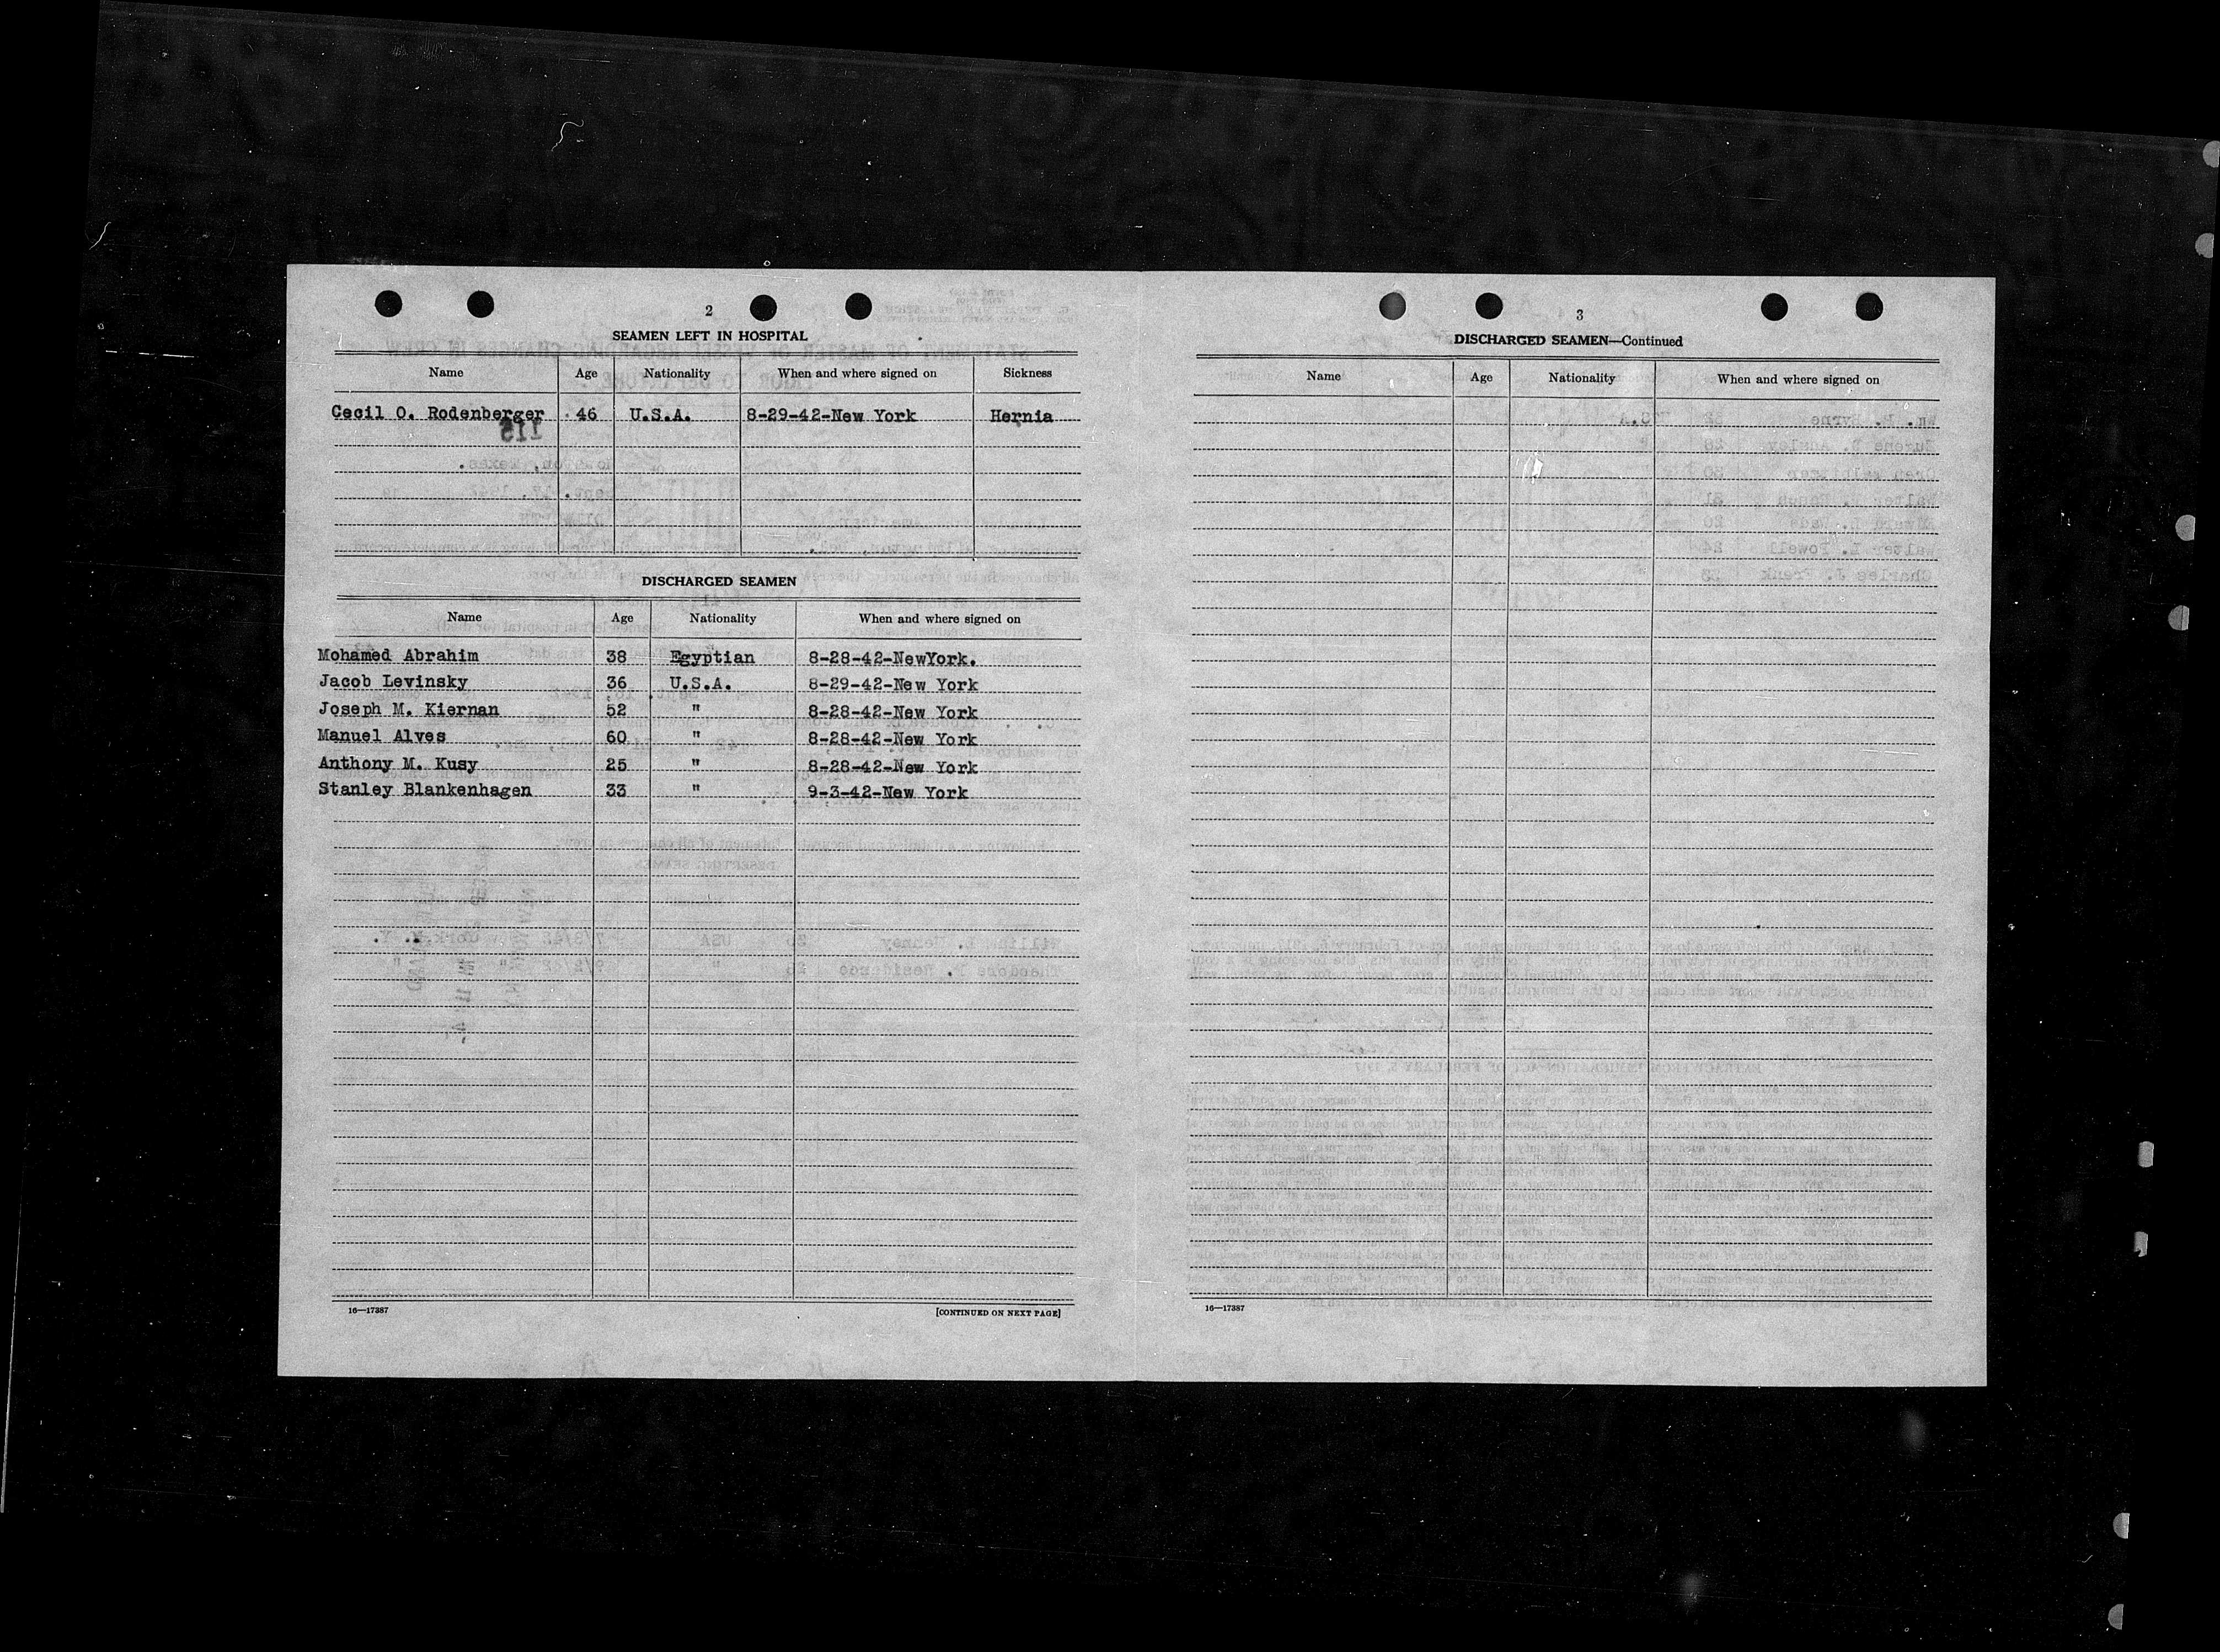 2
SEAMEN LEFT IN HOSPITAL
Name Age Nationality When and where signed on Sickness
Cecil O. Rodenberger 46 U.S.A. 8-29-42-New York Hernia
DISCHARGED SEAMEN
Name Age Nationality When and where signed on
Mohamed Abrahim 38 Egyptian 8-28-42-NewYork.
Jacob Levinsky 36 U.S.A. 8-29-42-New York
Joseph M. Kiernan 52 " 8-28-42-New York
Manuel Alves 60 " 8-28-42-New York
Anthony M. Kusy 25 " 8-28-42-New York
Stanley Blankenhagen 33 " 9-3-42-New York
16—17387 [CONTINUED ON NEXT PAGE]
3
DISCHARGED SEAMEN—Continued
Name Age Nationality When and where signed on
16—17387